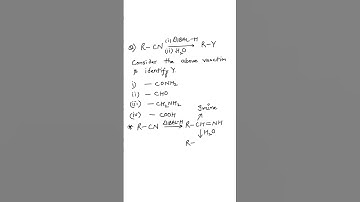 Q) R-CN (i) DIBAL-H (ii) H2O → R-Y
Consider the above reaction
& identify Y.
i) -CONH2
ii) -CHO
(iii) -CH2NH2
(iv) -COOH
Imine
* R-CN DIBAL-H → R-CH=NH
↓ H2O
R-